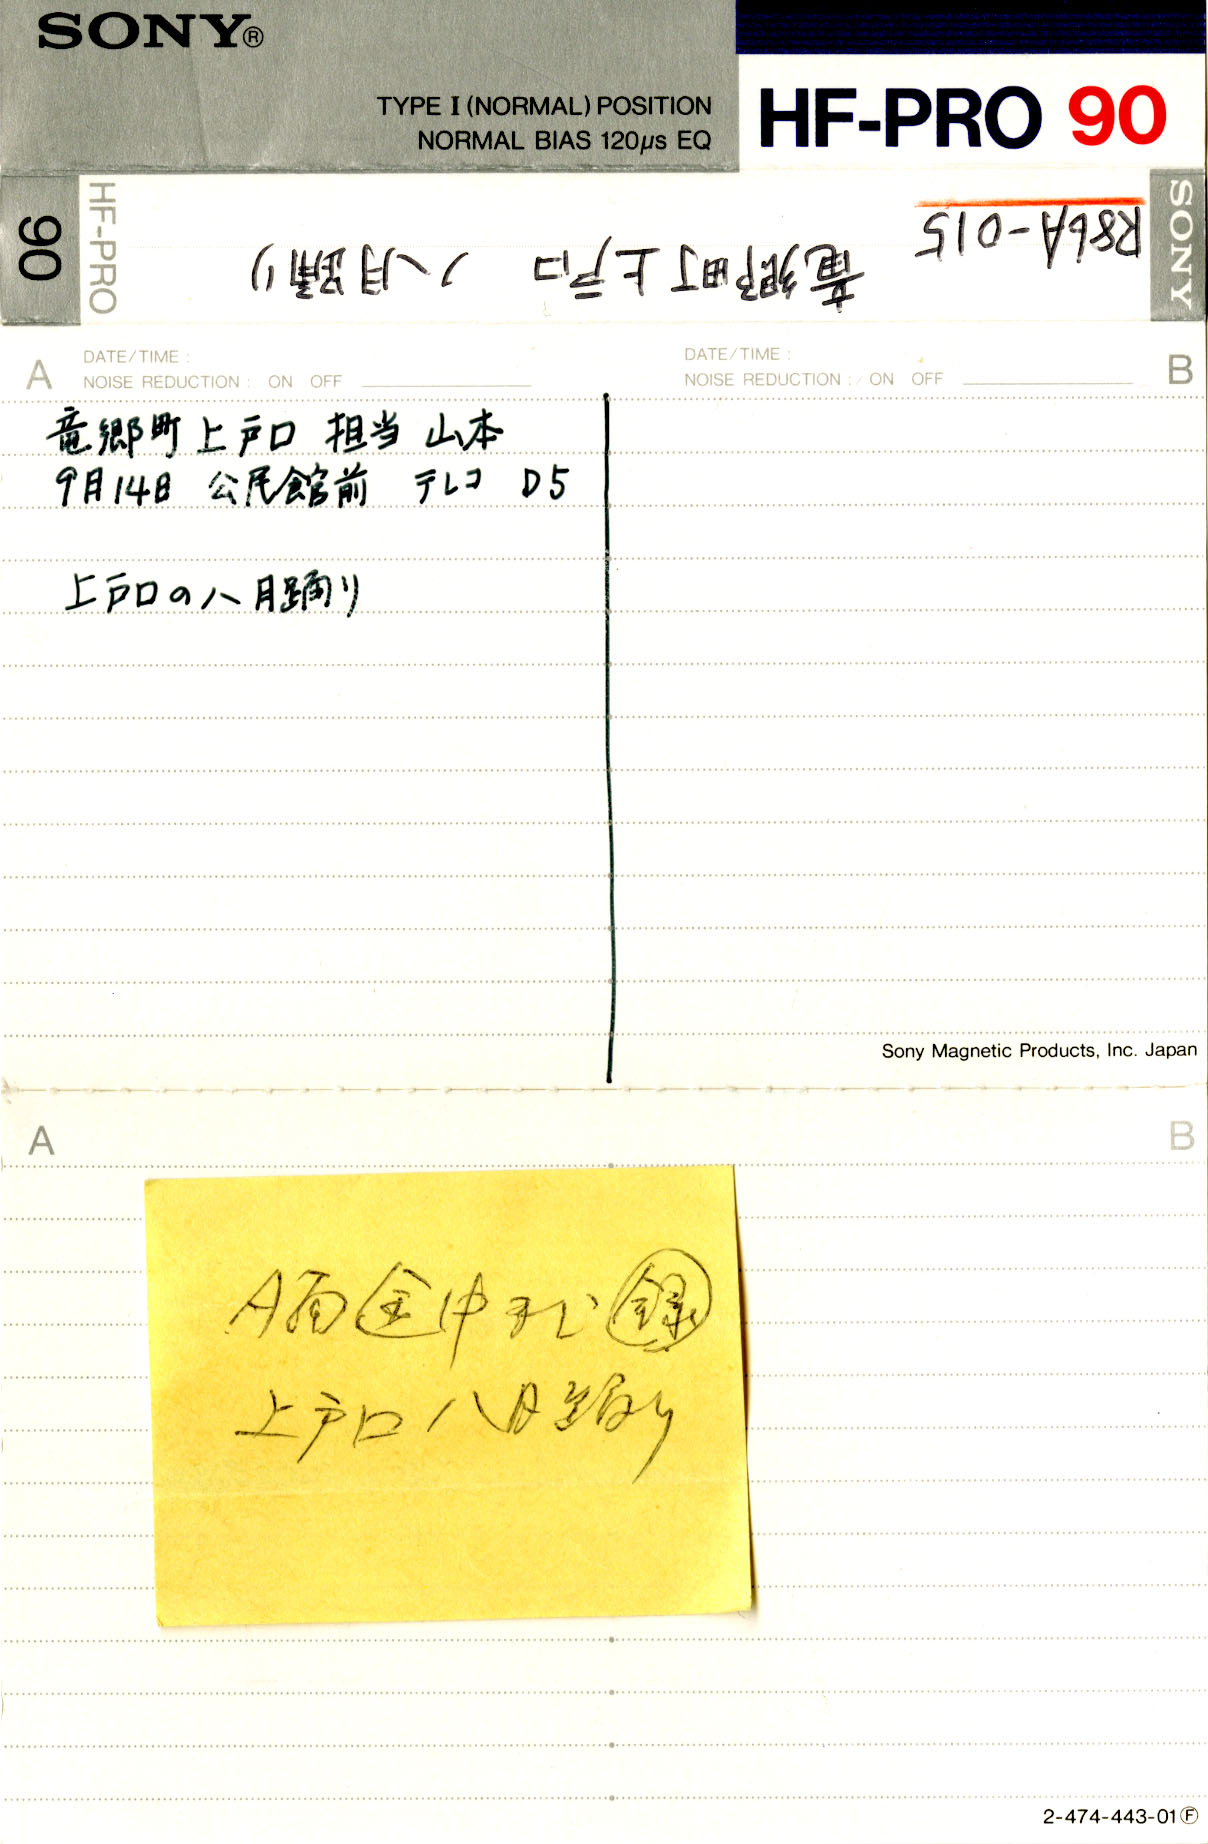 SONY®
TYPE I (NORMAL) POSITION
NORMAL BIAS 120μs EQ
HF-PRO 90
90
HF-PRO
R86A-015
竜郷町上戸口 八月踊り
SONY
A
DATE/TIME :
NOISE REDUCTION : ON OFF
DATE/TIME :
NOISE REDUCTION : ON OFF
B
竜郷町上戸口 担当 山本
9月14日 公民館前 テレコ D5
上戸口の八月踊り
Sony Magnetic Products, Inc. Japan
A
B
A面途中まで録
上戸口八月踊り
2-474-443-01Ⓕ